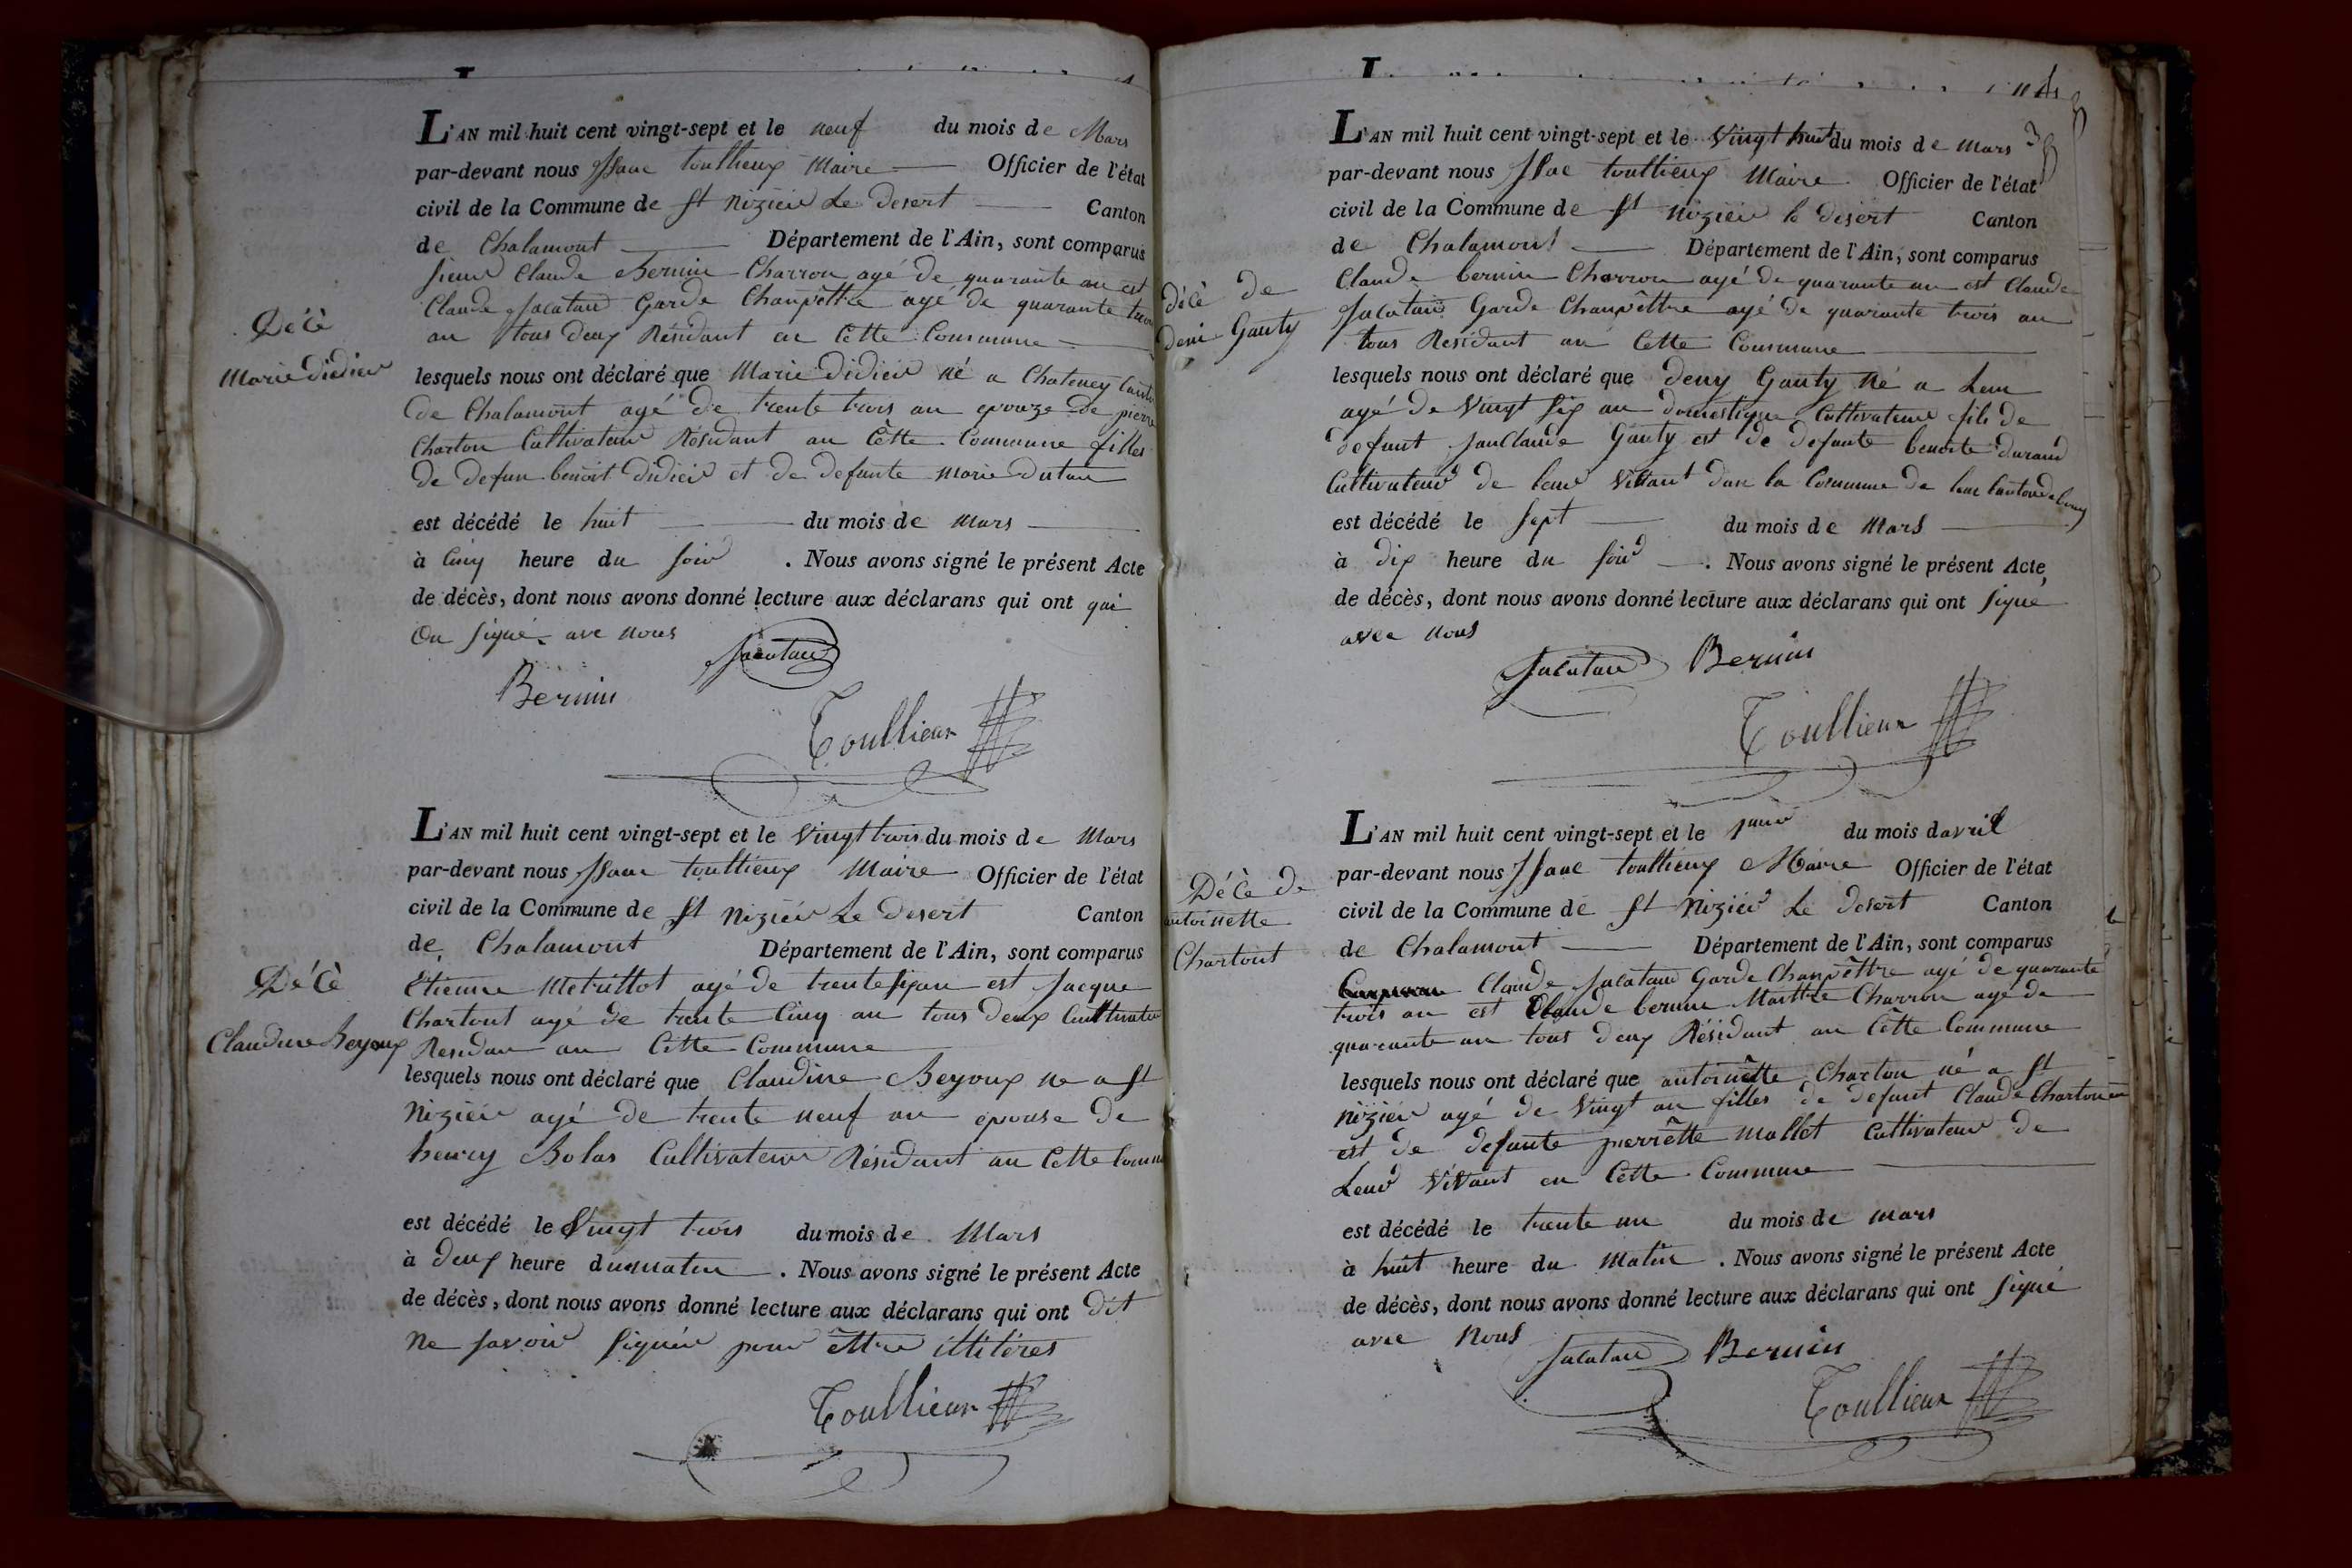 L'AN mil huit cent vingt-sept et le neuf du mois de Mars
par-devant nous Isaac toullieux Maire Officier de l'état
civil de la Commune de St Nizier Le Desert Canton
de Chalamont Département de l'Ain, sont comparus
sieur Claude Bernin Charron agé de quarante an est
Claude Jacatau Garde Champêttre agé de quarante trois
an tous deux Résidant en Cette Commune
Décè
Marie Didier
lesquels nous ont déclaré que Marie Didier né a Chateney Canton
de Chalamont agé de trente trois an epouze de pierre
Charton Cultivateur Résidant an Cètte Commune filles
de defun benoit Didier et de defunte Marie Dutau
est décédé le huit du mois de Mars
à Cinq heure du soir . Nous avons signé le présent Acte
de décès, dont nous avons donné lecture aux déclarans qui ont qui
On signé ave nous
Jacatau
Bernin
Toullieux
L'AN mil huit cent vingt-sept et le Vingt trois du mois de Mars
par-devant nous Isaac toullieux Maire Officier de l'état
civil de la Commune de St Nizier Le Desert Canton
de Chalamont Département de l'Ain, sont comparus
Etienne Metrillot agé de trente six an est Jacque
Chartont agé de trente Cinq an tous deux Cultivateur
Residan an Cette Commune
Décè
Claudine Beyoux
lesquels nous ont déclaré que Claudine Beyoux ne a St
Nizier agé de trente neuf an epouse de
henry Bolas Cultivateur Résidant an Cette Commu
est décédé le Vingt trois du mois de Mars
à deux heure du matin . Nous avons signé le présent Acte
de décès, dont nous avons donné lecture aux déclarans qui ont dit
Ne savoir signér pour êttre illitéres
Toullieux
L'AN mil huit cent vingt-sept et le Vingt huit du mois de Mars
par-devant nous Isac toullieux Maire Officier de l'état
civil de la Commune de St Nizier le Desert Canton
de Chalamont Département de l'Ain, sont comparus
Claude bernin Charron agé de quarante an est Claude
Jacatau Garde Champêttre agé de quarante trois an
tous Residant an Cette Commune
décè de
deni Gauty
lesquels nous ont déclaré que deny Gauty né a Lent
agé de Vingt six an domestique Cultivateur fils de
defunt janClaude Gauty est de defunte benoite durand
Cultivateur de leur Vivant dan la Commune de lent Canton de bourg
est décédé le Sept du mois de Mars
à dix heure du soir . Nous avons signé le présent Acte
de décès, dont nous avons donné lecture aux déclarans qui ont signé
avec nous
Jacatau Bernin
Toullieux
L'AN mil huit cent vingt-sept et le 1mier du mois davril
par-devant nous Isaac toullieux Maire Officier de l'état
civil de la Commune de St Nizier Le Desert Canton
de Chalamont Département de l'Ain, sont comparus
Claude Jacatau Garde Champêttre agé de quarante
trois an est Claude bernin Maittre Charron agé de
quarante an tous deux Résidant an Cètte Commune
Décè de
antoinette
Chartont
lesquels nous ont déclaré que antoinètte Charton né a St
Nizier agé de Vingt an filles de defunt Claude Charton
est de defunte pierrêtte Mallet Cultivateur de
Leur ViVant en Cètte Commune
est décédé le trente un du mois de mars
à huit heure du Matin . Nous avons signé le présent Acte
de décès, dont nous avons donné lecture aux déclarans qui ont signé
avec Nous
Jacatau Bernin
Toullieux